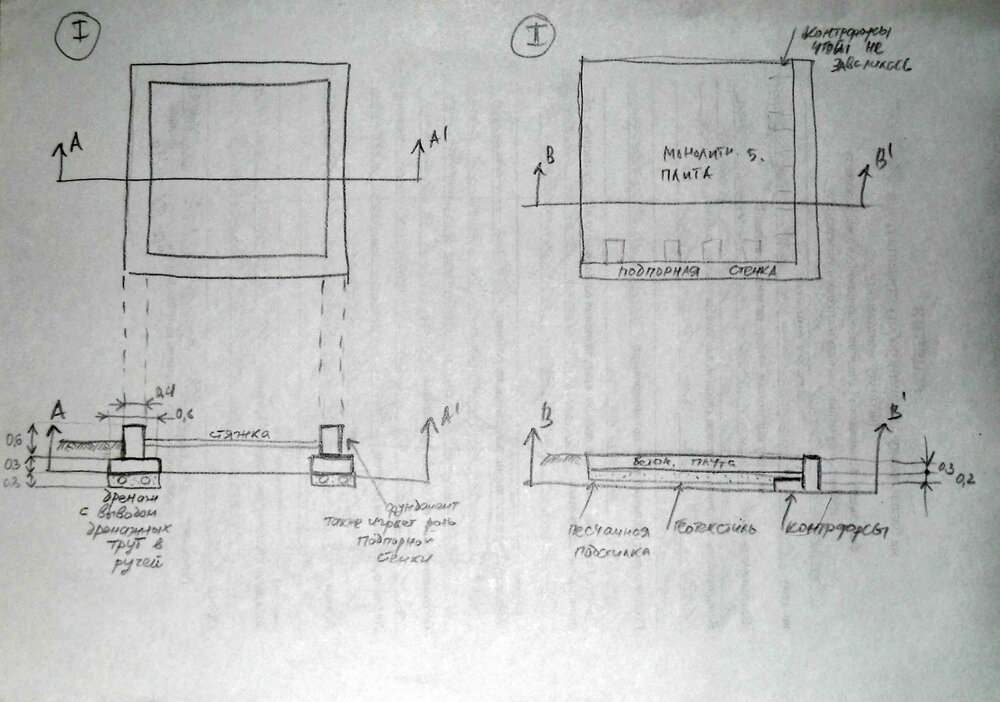 I
II
контрфорсы
чтобы не
завалилась
A
A'
B
B'
монолитн. б.
плита
подпорная стенка
0,4
0,6
A
A'
стяжка
0,6
0,3
0,3
дренаж
с выводом
дренажных
труб в
ручей
фундамент
также играет роль
подпорной
стенки
B
B'
бетон. плита
0,3
0,2
песчанная
подсыпка
геотекстиль
контрфорсы